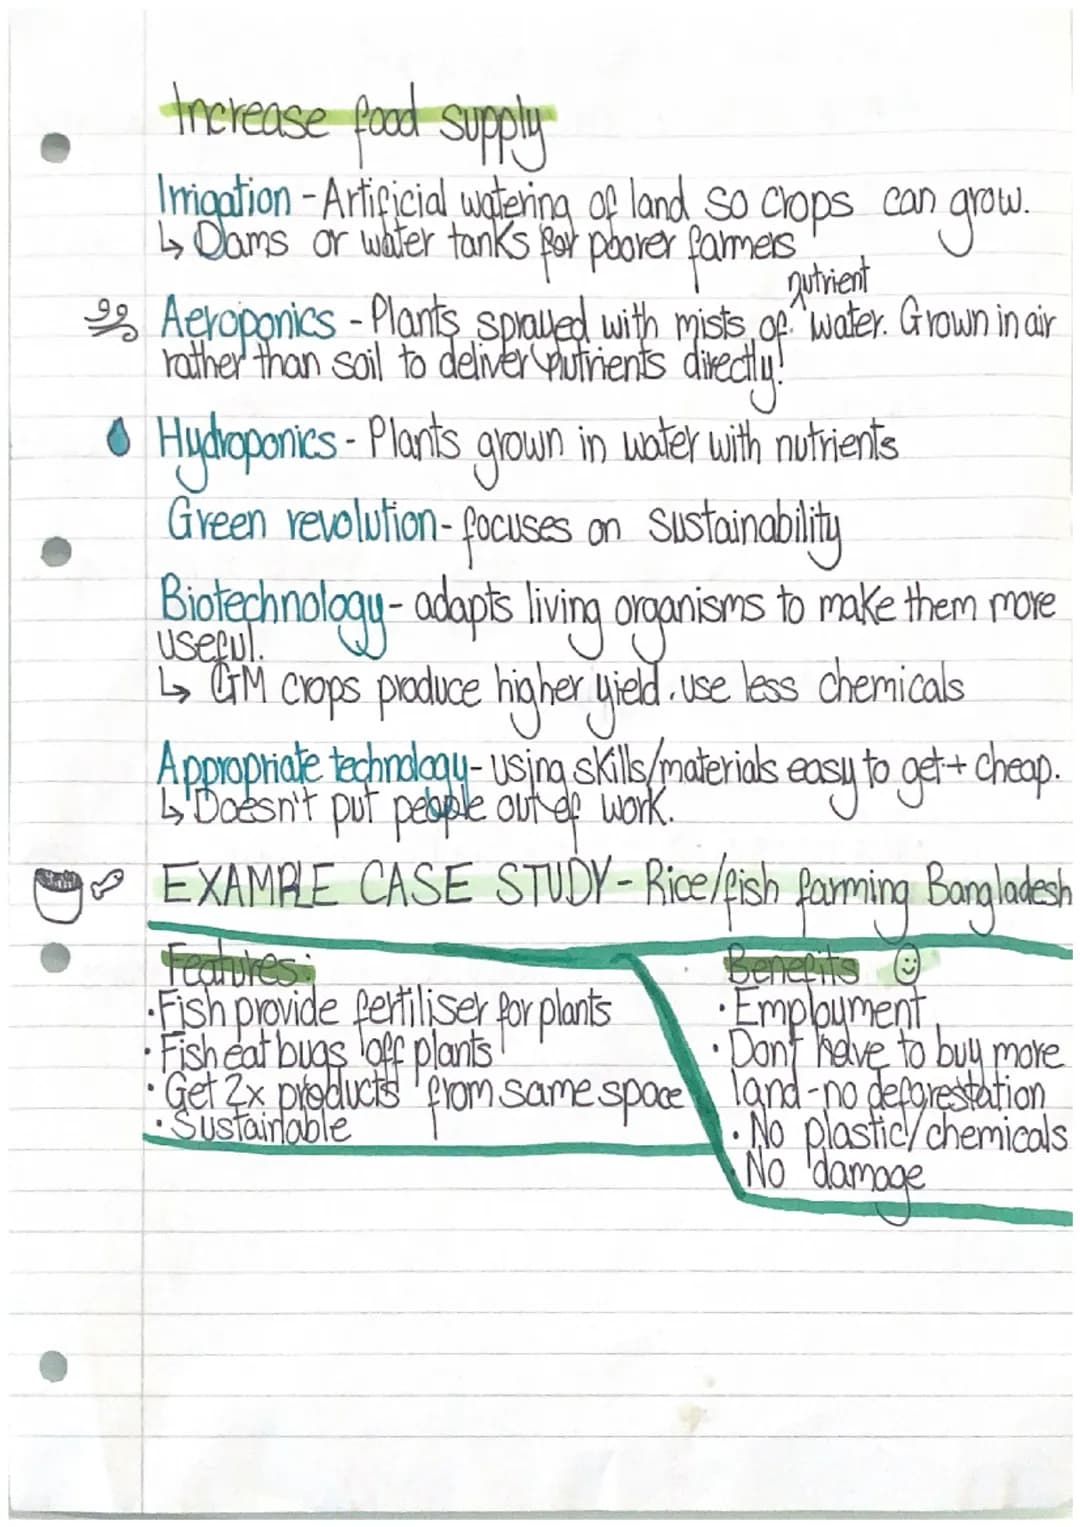 Increase food supply
Irrigation - Artificial watering of land so crops can grow.
↳ Dams or water tanks for poorer farmers
nutrient
Aeroponics - Plants sprayed with mists of water. Grown in air
rather than soil to deliver nutrients directly!
Hydroponics - Plants grown in water with nutrients
Green revolution - focuses on sustainability
Biotechnology - adapts living organisms to make them more
useful.
↳ GM crops produce higher yield. use less chemicals
Appropriate technology - using skills/materials easy to get + cheap.
↳ Doesn't put people out of work.
EXAMPLE CASE STUDY - Rice/fish farming Bangladesh
Features:
· Fish provide fertiliser for plants
· Fish eat bugs off plants
· Get 2x products from same space
· Sustainable
Benefits
· Employment
· Don't have to buy more
land - no deforestation
· No plastic/chemicals
· No damage